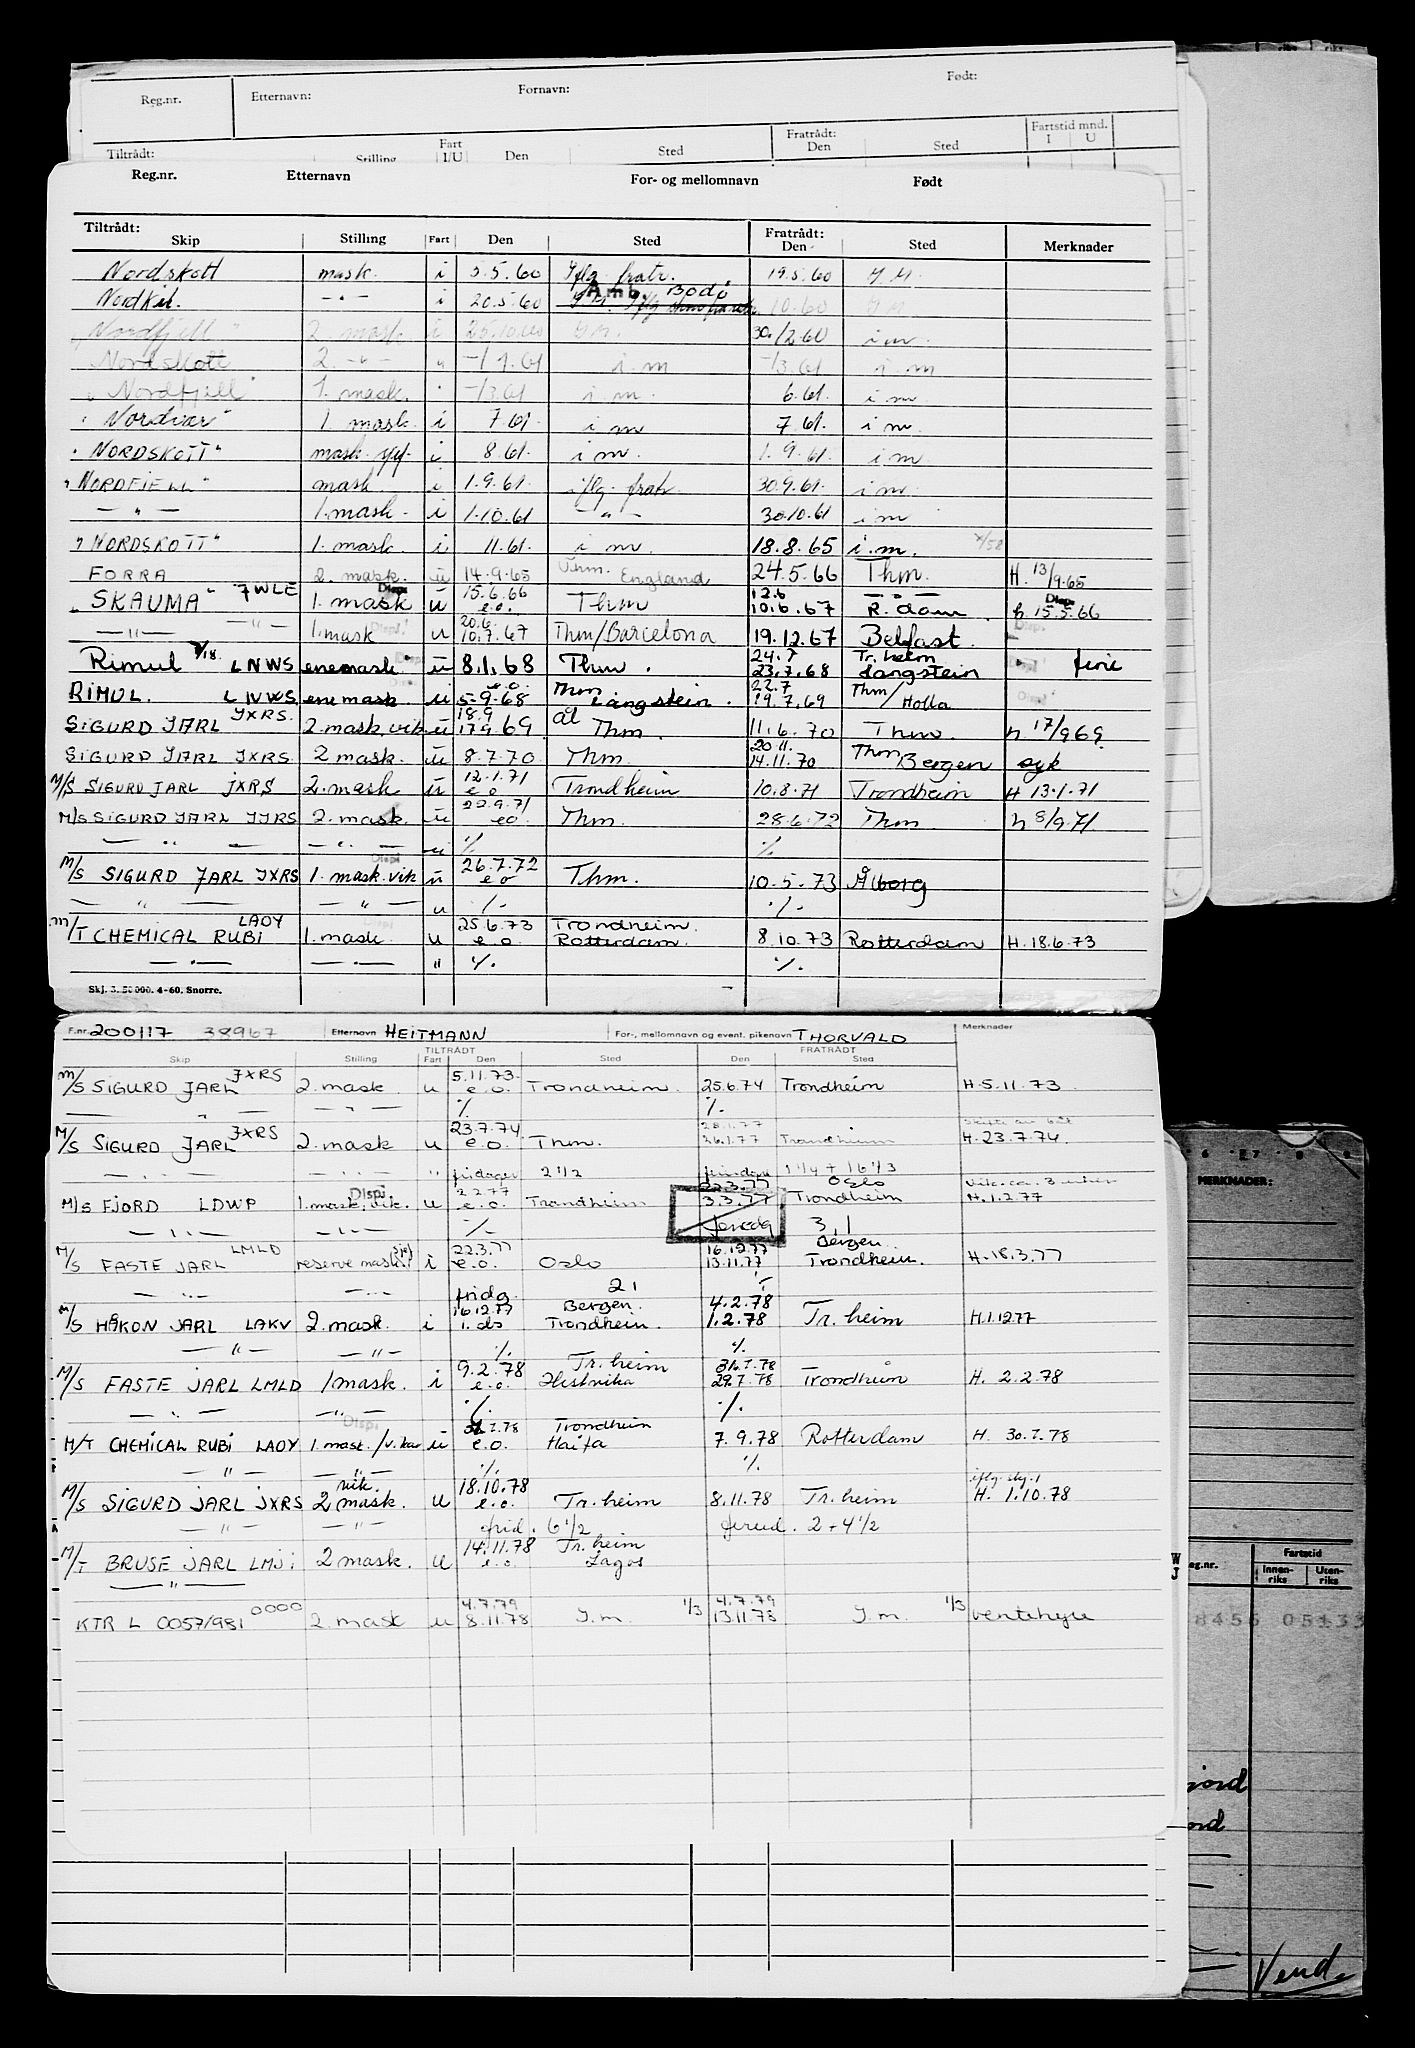 Reg.nr. Etternavn: Fornavn: Født:
Tiltrådt: Stilling Fart I/U Den Sted Fratrådt: Den Sted Fartstid mnd. I U
Reg.nr. Etternavn For- og mellomnavn Født
Tiltrådt: Skip Stilling Fart Den Sted Fratrådt: Den Sted Merknader
Nordskott mask. i 5.5.60 iflg. fratr. 19.5.60
Amb. Bodø
i 20.5.60 10.60
Nordfjell 2 mask i 30/12.60 i.m.
Nordskott 2. -"- -/1.61 i m -/3.61 i m
"Nordfjell" 1. mask. -/3.61 i m. 6.61. i m.
"Nordvar" 1 mask. i 7.61. i m 7.61. i m.
"NORDSKOTT" mask. i 8.61. i m. 1.9.61. i m
"NORDFJELL" mask i 1.9.61. iflg. fratr. 30.9.61. i m
— " — 1.mask. i 1.10.61 — " — 30.10.61 i m
"NORDSKOTT" 1. mask. i 11.61. i m. 18.8.65 i.m.
FORRA 2. mask. u 14.9.65 England 24.5.66 Thm. H. 13/9.65
"SKAUMA" JWLE 1. mask Disp. u 15.6.66 e.o. Thm 12.6 10.6.67 R.dam Disp. 15.5.66
— " — — " — 1.mask Disp. u 20.6. 10.7.67 Thm/Barcelona 19.12.67 Belfast.
Rimul LNWS enemask Disp. u 8.1.68 Thm. 24.7 23.7.68 Tr.heim Langstein ferie
RIMUL. LNWS enemask. u e.o. 5-9-68 Thm Langstein. 22.7 19.7.69 Thm/Holla
SIGURD JARL JXRS. 2.mask.vik u 18.9 17.9.69 ål Thm. 11.6.70 Thm. h 17/9 69.
SIGURD JARL JXRS 2 mask. u 8.7.70. Thm. 20.11. 14.11.70 Thm Bergen syk
M/S SIGURD JARL JXRS 2.mask u 12.1.71 e o Trondheim 10.8.71 Trondheim H 13.1.71
M/S SIGURD JARL JXRS 2. mask. u 22.9.71 eo Thm. 28.6.72 Thm. h 8/9.71.
— " — — " — u ./. ./.
M/S SIGURD JARL JXRS 1. mask.vik Disp. u 26.7.72 e o Thm. 10.5.73 Ålborg
— " — — " — u ./. ./.
M/T CHEMICAL RUBI LAOY 1. mask. u 25.6.73 e.o. Trondheim. Rotterdam. 8.10.73 Rotterdam H.18.6.73
— " — — " — " ./. ./.
Skj. 3. 50 000. 4-60. Snorre.
F.nr. 200117 38967 Etternavn HEITMANN For-, mellomnavn og event. pikenavn THORVALD Merknader
TILTRÅDT FRATRÅDT
Skip Stilling Fart Den Sted Den Sted
M/S SIGURD JARL JXRS 2.mask u 5.11.73. e.o. Trondheim. 25.6.74 Trondheim H.5.11.73
— " — — " — ./. ./.
M/S SIGURD JARL JXRS 2.mask u 23.7.74 e.o. Thm. 28.1.77 26.1.77 Trondheim H.23.7.74.
— " — — " — " fridager 2 1/2 1 1/4 + 16 1/3
M/S FJORD LDWP 1.mask, vik. Disp. u 2.2.77 e.o. Trondheim 22.3.77 3.3.77 Oslo Trondheim H.1.2.77
— " — — " — ./. 3.1
M/S FASTE JARL LMLD reserve mask. i 22.3.77 e.o. Oslo 16.12.77 13.11.77 Bergen. Trondheim. H.18.3.77
— " — — " — fridg. 21 ./.
M/S HÅKON JARL LAKV 2.mask. i 16.12.77 Bergen. Trondheim. 4.2.78 1.2.78 Tr.heim H.1.12.77
— " — — " — ./. ./.
M/S FASTE JARL LMLD 1mask. i 9.2.78 e.o. Tr.heim Hestvika 31.7.78 29.7.78 Trondheim H. 2.2.78
— " — — " — ./. ./.
M/T CHEMICAL RUBI LAOY 1.mask./vikar Disp. u 7.78 e.o. Trondheim Haifa 7.9.78 Rotterdam H. 30.7.78
— " — — " — ./. ./.
M/S SIGURD JARL JXRS vik. 2 mask. u 18.10.78 e.o. Tr.heim 8.11.78 Tr.heim H. 1.10.78
— " — — " — frid. 6 1/2 2 + 4 1/2
M/T BRUSE JARL LMJI 2 mask. u 14.11.78 e.o. Tr.heim Lagos
— " —
KTR L 0057/981 0000 2.mask u 4.7.79 8.11.78 I.m. 1/3 4.7.79 13.11.78 I.m. 1/3 ventehyre
MERKNADER:
Fartstid
eg.nr. Innenriks Utenriks
8456 05133
jord
ord
Vend.